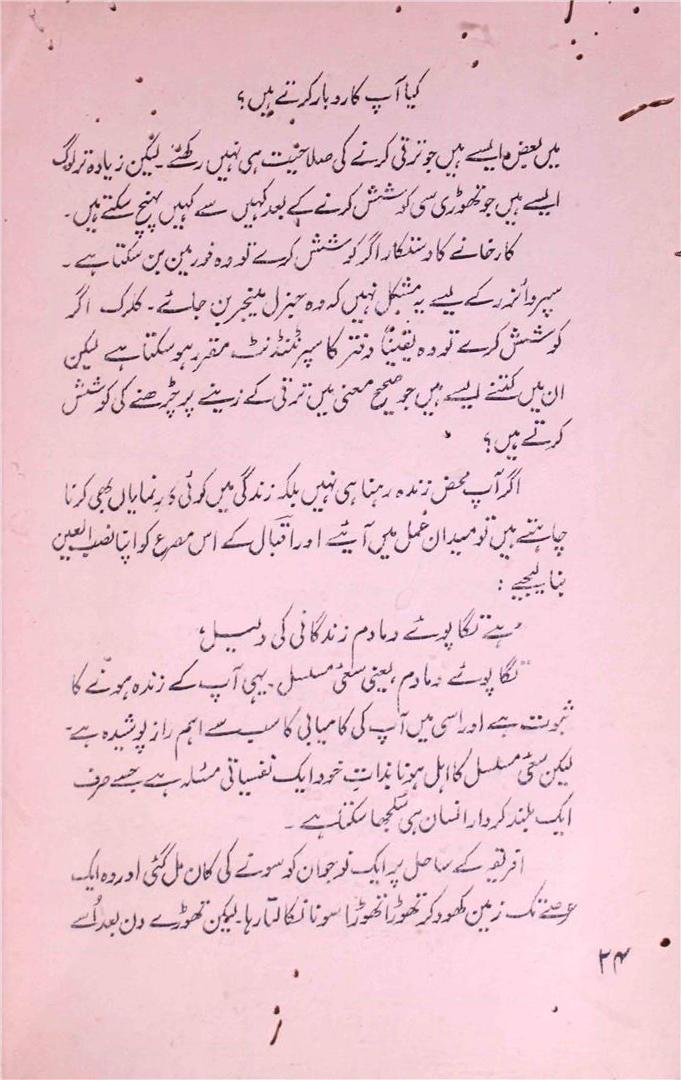 کیا آپ کاروبار کرتے ہیں؟
میں بعض ایسے ہیں جو ترقی کرنے کی صلاحیت ہی نہیں رکھتے۔ لیکن زیادہ تر لوگ
ایسے ہیں جو تھوڑی سی کوشش کرنے کے بعد کہیں سے کہیں پہنچ سکتے ہیں۔
کارخانے کا دستکار اگر کوشش کرے تو وہ فورمین بن سکتا ہے۔
سپروائزر کے لیے یہ مشکل نہیں کہ وہ جنرل مینجر بن جائے۔ کلرک اگر
کوشش کرے تو وہ یقیناً دفتر کا سپرنٹنڈنٹ مقرر ہو سکتا ہے لیکن
ان میں کتنے ایسے ہیں جو صحیح معنی میں ترقی کے زینے پر چڑھنے کی کوشش
کرتے ہیں؟
اگر آپ محض زندہ رہنا ہی نہیں بلکہ زندگی میں کوئی کارِ نمایاں بھی کرنا
چاہتے ہیں تو میدان عمل میں آیئے اور اقبال کے اس مصرع کو اپنا نصب العین
بنا لیجیے :
ہے تگاپوئے دمادم زندگانی کی دلیل،
"تگاپوئے دمادم، یعنی سعیٔ مسلسل۔ یہی آپ کے زندہ ہونے کا
ثبوت ہے اور اسی میں آپ کی کامیابی کا سب سے اہم راز پوشیدہ ہے۔
لیکن سعیٔ مسلسل کا اہل ہونا بذاتِ خود ایک نفسیاتی مسئلہ ہے جسے صرف
ایک بلند کردار انسان ہی سلجھا سکتا ہے۔
افریقہ کے ساحل پر ایک نوجوان کو سونے کی کان مل گئی اور وہ ایک
عرصے تک زمین کھود کر تھوڑا تھوڑا سونا نکالتا رہا۔ لیکن تھوڑے دن بعد اُسے
۲۴